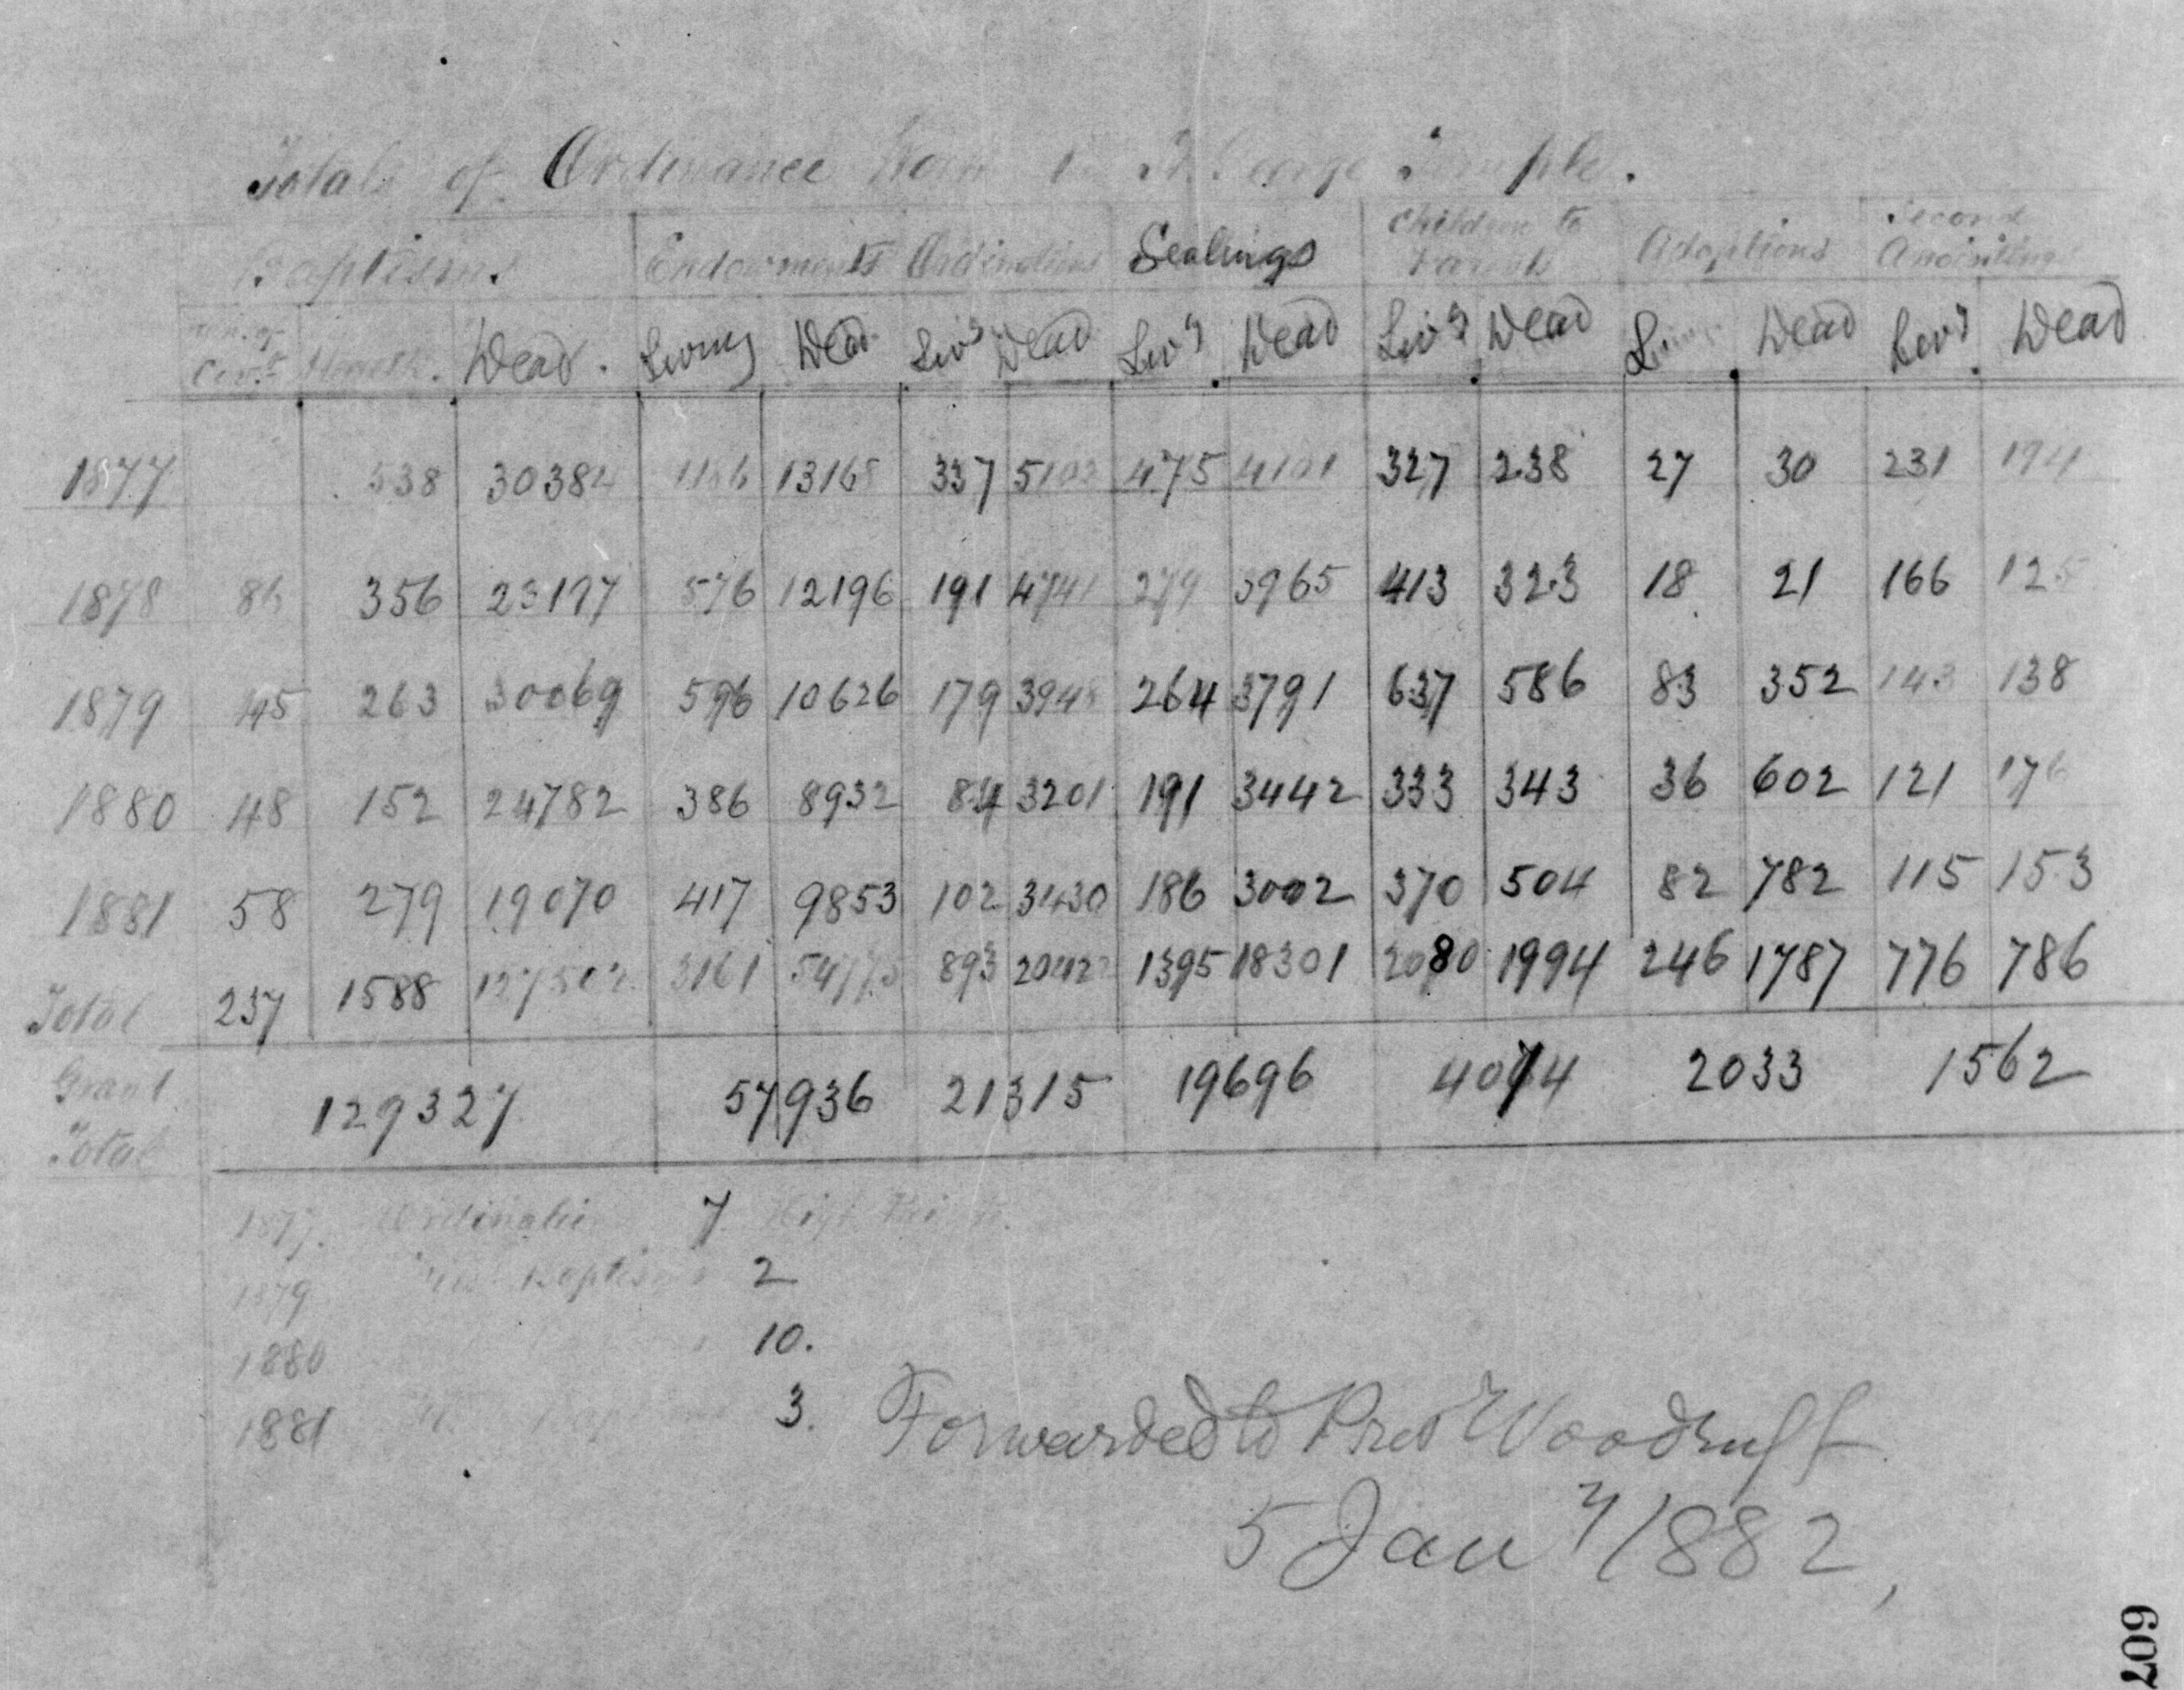 Totals of Ordinance Work in St. George Temple.
Baptisms. Endowments Ordinations Sealings Children to Parents Adoptions Second Anointings
Health. Dead. Living Dead Liv'g Dead Liv'g Dead Liv'g Dead Living Dead Liv'g Dead
1877 538 30384 1186 13168 337 5102 475 4101 327 238 27 30 231 194
1878 86 356 23197 576 12196 191 4741 279 3965 413 323 18 21 166 125
1879 45 263 30069 596 10626 179 3948 264 3791 637 586 83 352 143 138
1880 48 152 24782 386 8932 84 3201 191 3442 333 343 36 602 121 176
1881 58 279 19070 417 9853 102 3430 186 3002 370 504 82 782 115 153
Total 237 1588 127502 3161 54775 893 20422 1395 18301 2080 1994 246 1787 776 786
Grand Total 129327 57936 21315 19696 4074 2033 1562
1877. Ordinations 7. High Priests.
1879 Baptisms 2
1880 10.
1881 3.
Forwarded to Pres Woodruff
5 Jany 1882,
607